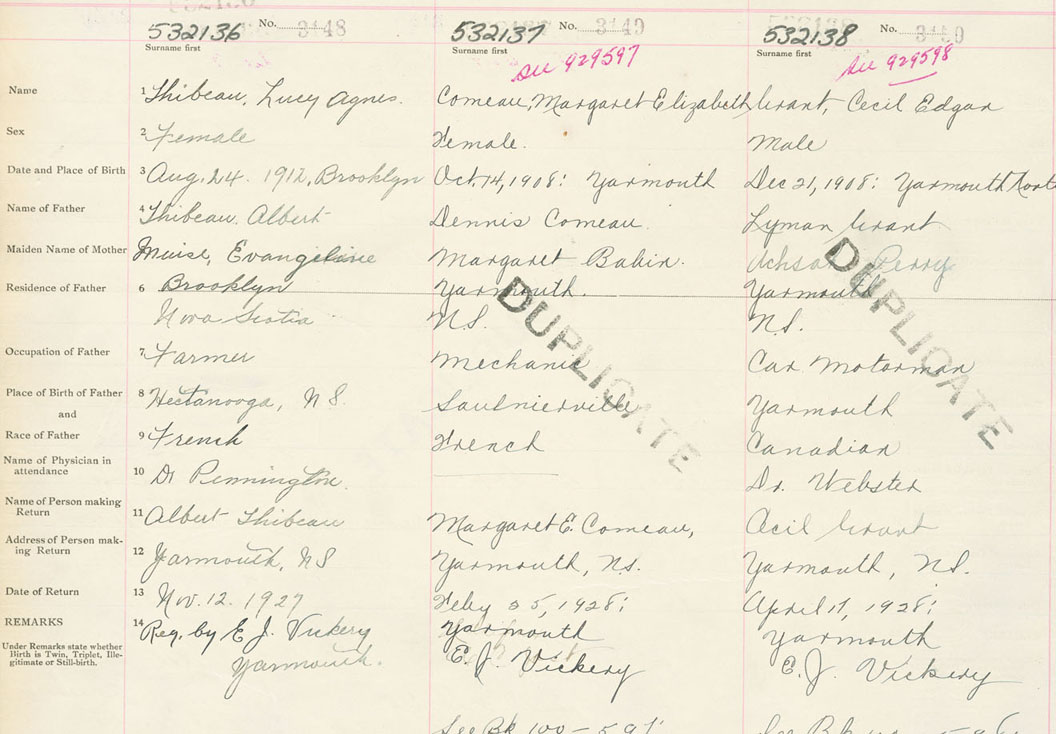 532136 No. 3148 532137 No. 3149 532138 No. 3150
Surname first Surname first Surname first
See 929597 See 929598
Name 1 Thibeau, Lucy Agnes. Comeau, Margaret Elizabeth Grant, Cecil Edgar
Sex 2 Female Female. Male
Date and Place of Birth 3 Aug. 24. 1912, Brooklyn Oct. 14, 1908: Yarmouth Dec 21, 1908: Yarmouth
Name of Father 4 Thibeau Albert Dennis Comeau. Lyman Grant
Maiden Name of Mother Muise, Evangeline Margaret Babin. Perry
Residence of Father 6 Brooklyn Yarmouth. Yarmouth
Nova Scotia N.S. N.S.
DUPLICATE DUPLICATE
Occupation of Father 7 Farmer Mechanic Car Motorman
Place of Birth of Father 8 Hectanooga, N S. Saulnierville Yarmouth
and
Race of Father 9 French French Canadian
Name of Physician in
attendance 10 Dr Pennington. Dr. Webster
Name of Person making
Return 11 Albert Thibeau Margaret E. Comeau, Cecil Grant
Address of Person mak-
ing Return 12 Yarmouth, NS Yarmouth, N.S. Yarmouth, N.S.
Date of Return 13 Nov. 12. 1927 Feby 25, 1928: April 11, 1928:
REMARKS 14 Reg. by E J. Vickery Yarmouth Yarmouth
Under Remarks state whether
Birth is Twin, Triplet, Ille-
gitimate or Still-birth.
Yarmouth. E. J. Vickery E. J. Vickery
See Bk 100 - 591 See Bk